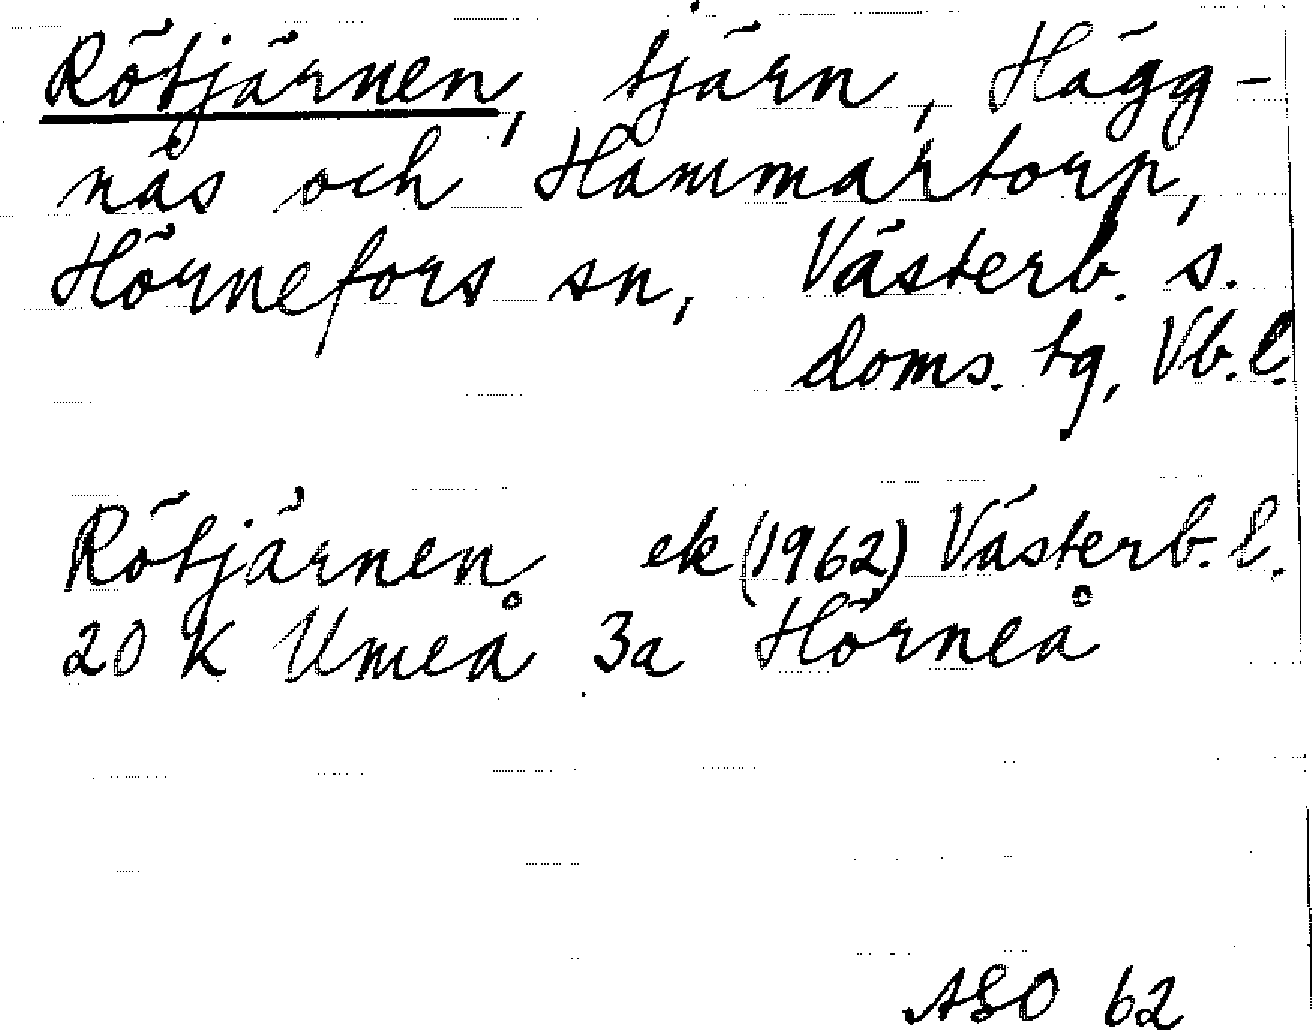 Rötjärnen, tjärn, Hägg-
näs och Hammartorp,
Hörnefors sn, Västerb. s.
doms. tg, Vb. l.
Rötjärnen ek (1962) Västerb. l.
20 K Umeå 3a Hörneå
ASO 62